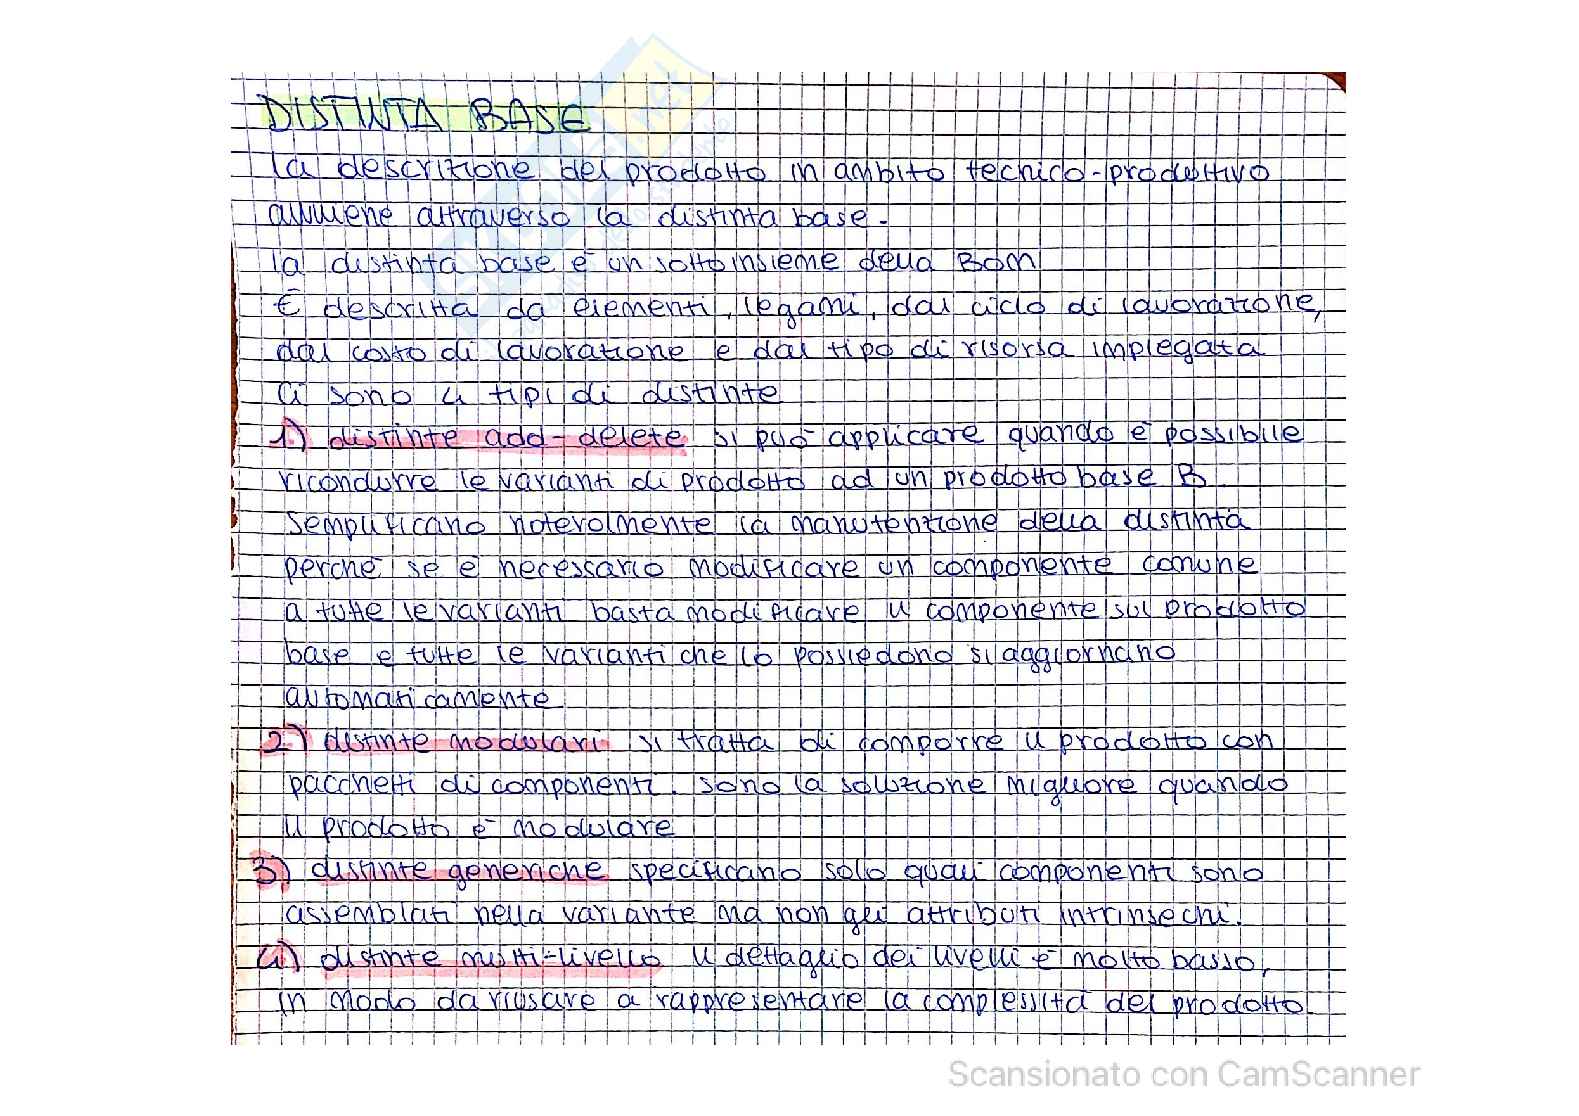 DISTINTA BASE
la descrizione del prodotto in ambito tecnico-produttivo
avviene attraverso la distinta base.
la distinta base è un sottoinsieme della BOM
È descritta da elementi, legami, dal ciclo di lavorazione,
dal costo di lavorazione e dal tipo di risorsa impiegata
Ci sono 4 tipi di distinte
1) distinte add-delete si può applicare quando è possibile
ricondurre le varianti di prodotto ad un prodotto base B
semplificano notevolmente la manutenzione della distinta
perché se è necessario modificare un componente comune
a tutte le varianti basta modificare il componente sul prodotto
base e tutte le varianti che lo possiedono si aggiornano
automaticamente
2) distinte modulari si tratta di comporre il prodotto con
pacchetti di componenti. sono la soluzione migliore quando
il prodotto è modulare
3) distinte generiche specificano solo quali componenti sono
assemblati nella variante ma non gli attributi intrinsechi.
4) distinte multi-livello il dettaglio dei livelli è molto basso,
in modo da riusare a rappresentare la complessità del prodotto
Scansionato con CamScanner